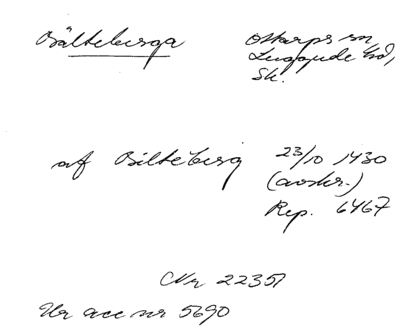 Bälteberga Ottarps sn
Luggude hd,
Sk.
af Bilteberg 23/10 1430
(avskr.)
Rep. 6467
Nr 22351
Ur acc nr 5690